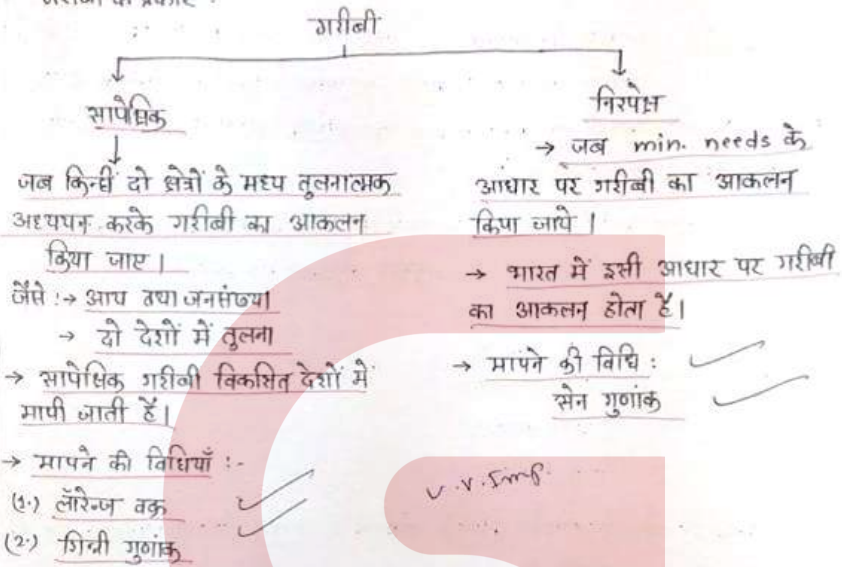 गरीबी के प्रकार :
गरीबी
सापेक्षिक
जब किन्हीं दो क्षेत्रों के मध्य तुलनात्मक
अध्ययन करके गरीबी का आकलन
किया जाए।
जैसे :→ आय तथा जनसंख्या
→ दो देशों में तुलना
→ सापेक्षिक गरीबी विकसित देशों में
मापी जाती है।
→ मापने की विधियाँ :-
(1.) लॉरेन्ज वक्र
(2.) गिन्नी गुणांक
निरपेक्ष
→ जब min. needs के
आधार पर गरीबी का आकलन
किया जाये।
→ भारत में इसी आधार पर गरीबी
का आकलन होता है।
→ मापने की विधि :
सेन गुणांक
V.V.Imp.